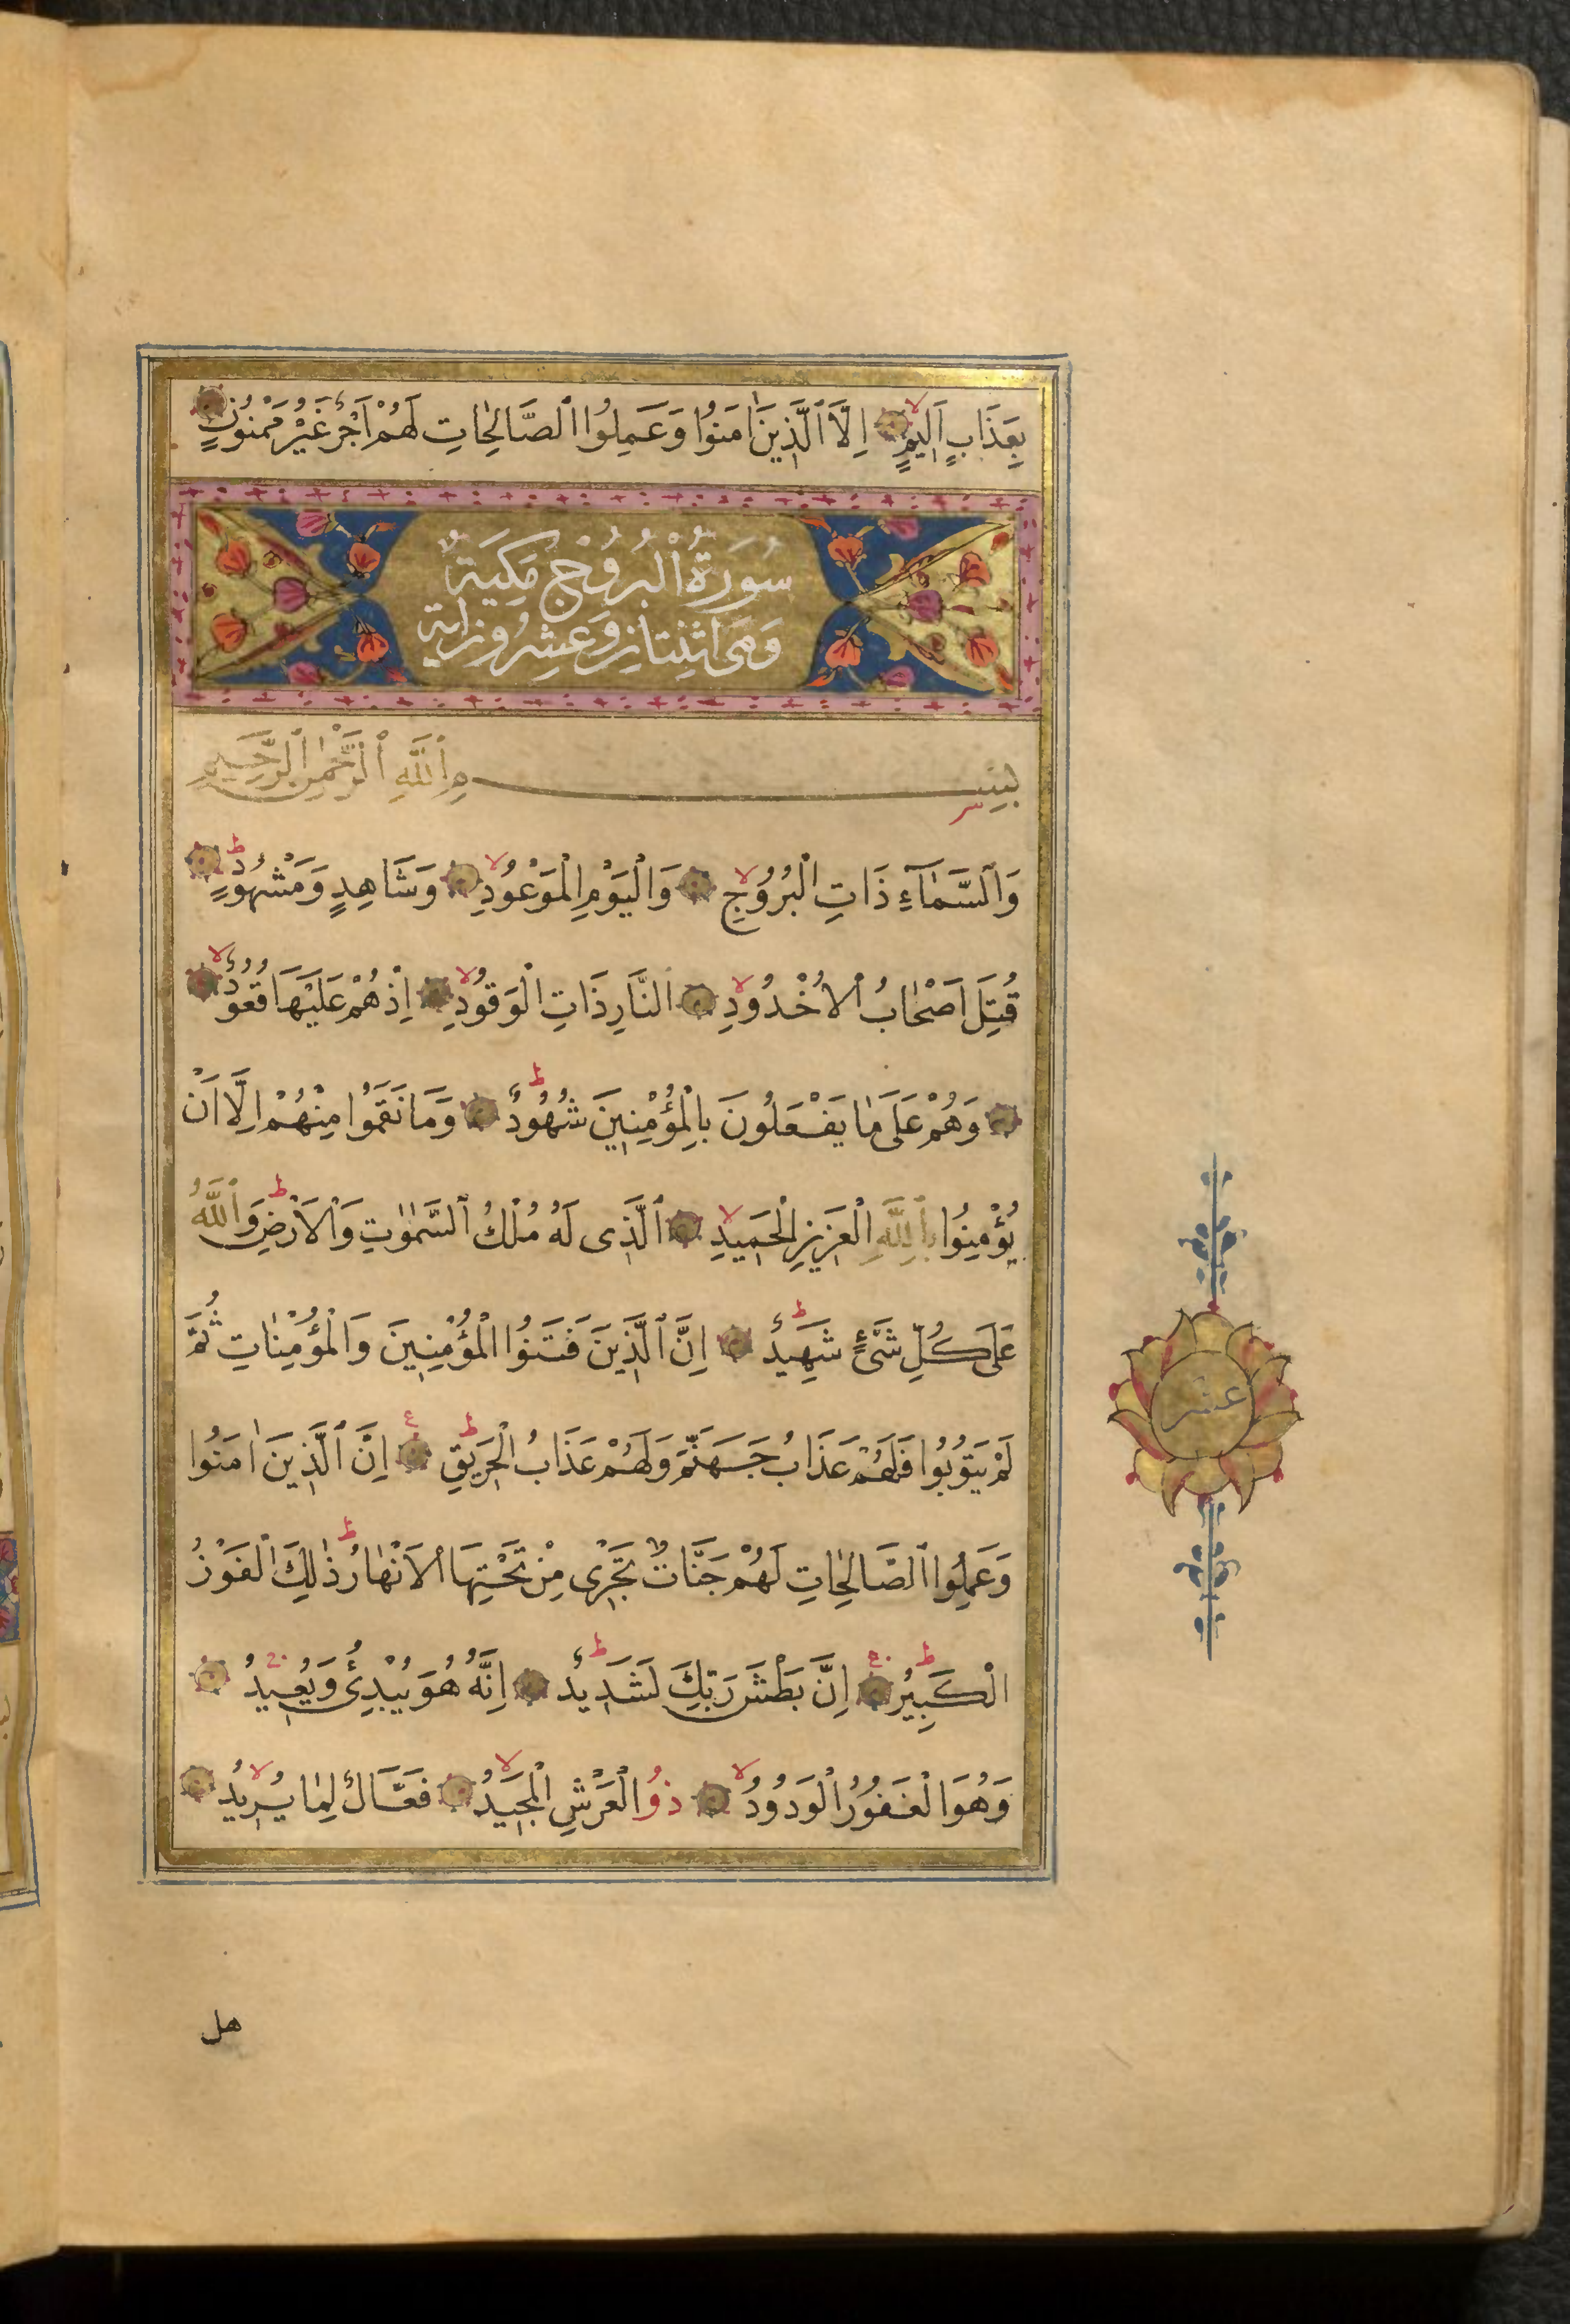 بِعَذَابٍ اَلِيمٍ اِلَّا ٱلَّذِينَ اٰمَنُوا وَعَمِلُوا ٱلصَّالِحَاتِ لَهُمْ اَجْرٌ غَيْرُ مَمْنُونٍ
سُورَةُ ٱلْبُرُوْجِ مَكِيَةٌ
وَهِىَ اثْنِتَانِ وَعِشْرُونَ اٰية
بِسْمِ ٱللّٰهِ ٱلرَّحْمٰنِ ٱلرَّحِيمِ
وَٱلسَّمَآءِ ذَاتِ الْبُرُوجِ وَالْيَوْمِ الْمَوْعُودِ وَشَاهِدٍ وَمَشْهُودٍ
قُتِلَ اَصْحَابُ ٱلْاُخْدُودِ اَلنَّارِ ذَاتِ الْوَقُودِ اِذْ هُمْ عَلَيْهَا قُعُودٌ
وَهُمْ عَلَى مَا يَفْعَلُونَ بِالْمُؤْمِنِينَ شُهُودٌ وَمَا نَقَمُوا مِنْهُمْ اِلَّا اَنْ
يُؤْمِنُوا بِٱللّٰهِ الْعَزِيزِ الْحَمِيدِ ٱلَّذِى لَهُ مُلْكُ ٱلسَّمٰوٰتِ وَالْاَرْضِ وَٱللّٰهُ
عَلَى كُلِّ شَىْءٍ شَهِيدٌ اِنَّ ٱلَّذِينَ فَتَنُوا الْمُؤْمِنِينَ وَالْمُؤْمِنَاتِ ثُمَّ
لَمْ يَتُوبُوا فَلَهُمْ عَذَابُ جَهَنَّمَ وَلَهُمْ عَذَابُ الْحَرِيقِ اِنَّ ٱلَّذِينَ اٰمَنُوا
وَعَمِلُوا ٱلصَّالِحَاتِ لَهُمْ جَنَّاتٌ تَجْرِى مِنْ تَحْتِهَا ٱلْاَنْهَارُ ذٰلِكَ الْفَوْزُ
الْكَبِيرُ اِنَّ بَطْشَ رَبِّكَ لَشَدِيدٌ اِنَّهُ هُوَ يُبْدِئُ وَيُعِيدُ
وَهُوَ الْغَفُورُ الْوَدُودُ ذُو الْعَرْشِ الْمَجِيدُ فَعَّالٌ لِمَا يُرِيدُ
عشر
هل